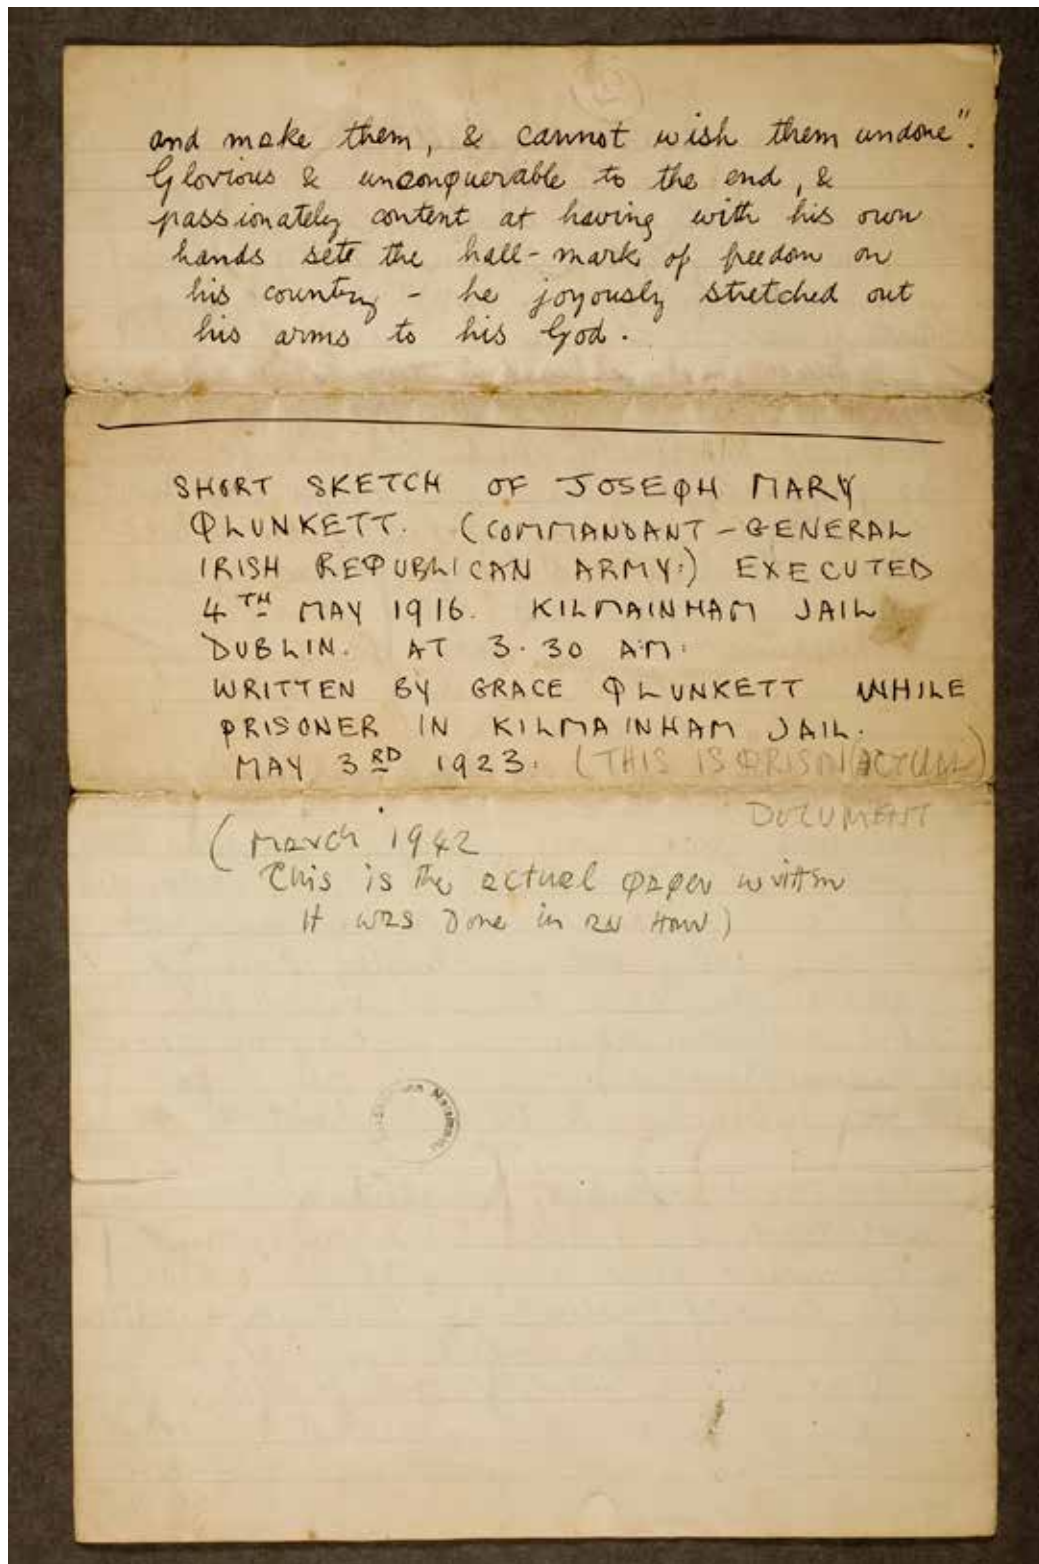 and make them, & cannot wish them undone".
Glorious & unconquerable to the end, &
passionately content at having with his own
hands sete the hall-mark of freedom on
his country - he joyously stretched out
his arms to his God.
SHORT SKETCH OF JOSEPH MARY
PLUNKETT. (COMMANDANT-GENERAL
IRISH REPUBLICAN ARMY.) EXECUTED
4TH MAY 1916. KILMAINHAM JAIL
DUBLIN. AT 3.30 AM.
WRITTEN BY GRACE PLUNKETT WHILE
PRISONER IN KILMAINHAM JAIL.
MAY 3RD 1923. (THIS IS PRISON (ACTUAL)
DOCUMENT
(March 1942
This is the actual paper written
It was Done in an Hour)